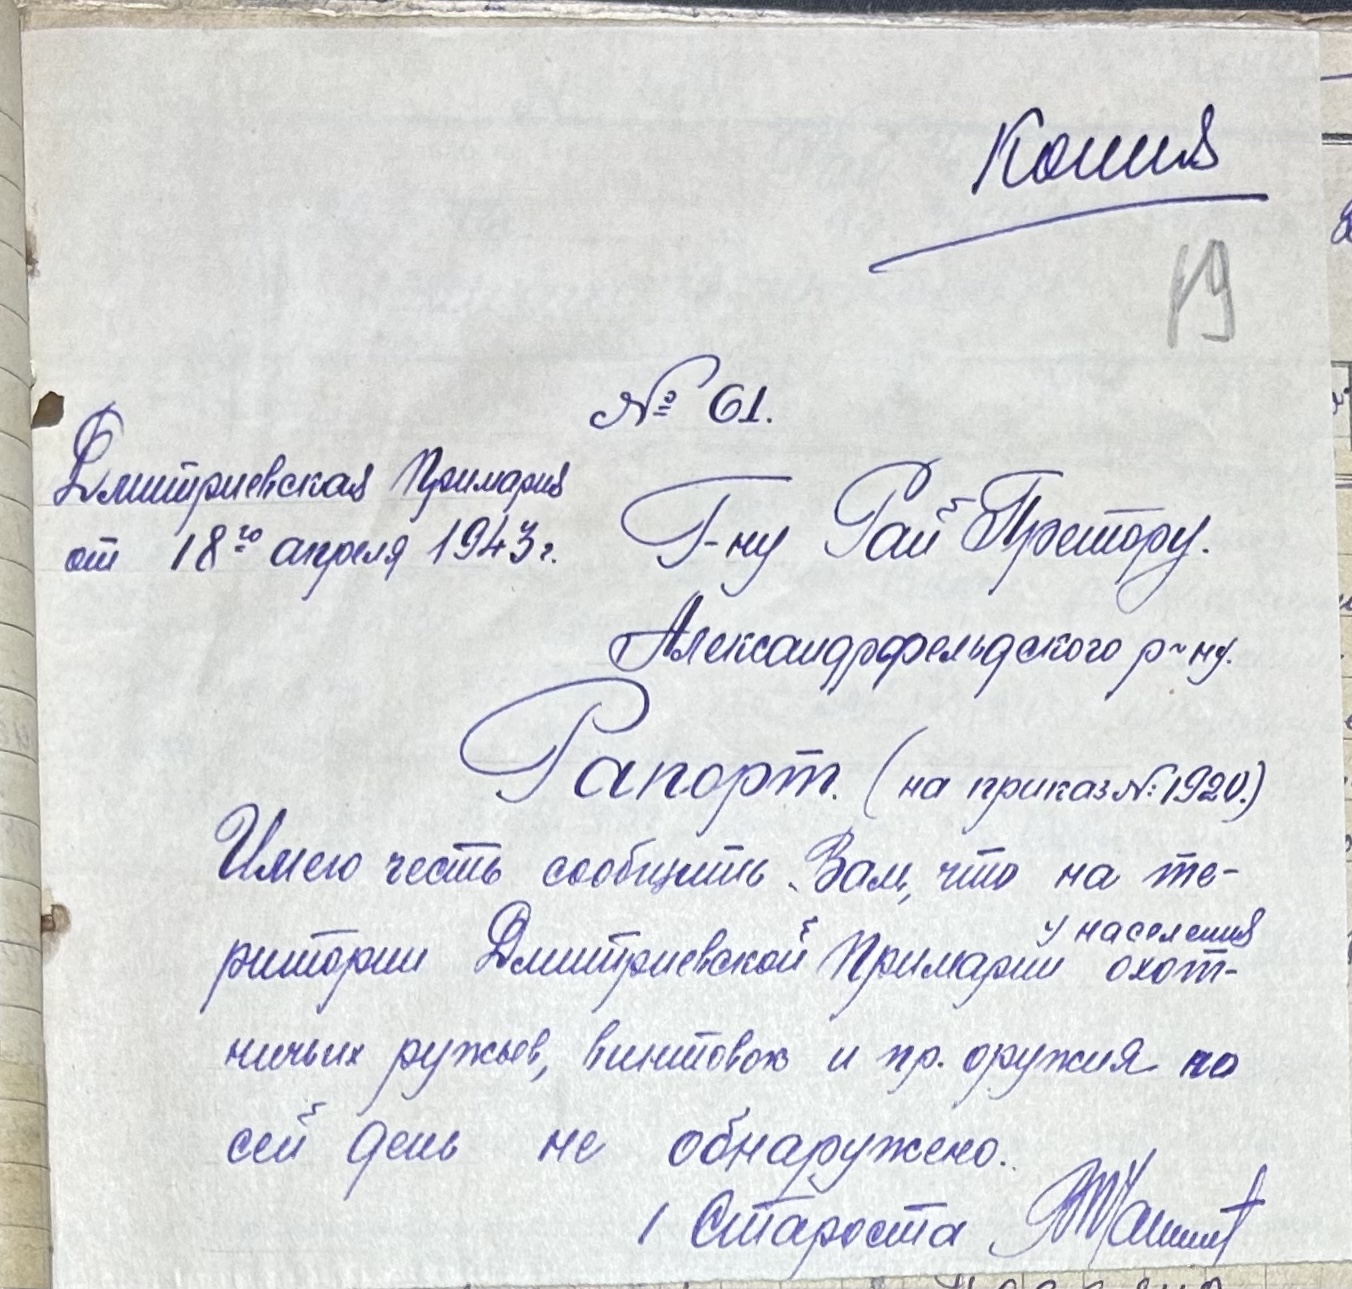 Копия
19
№ 61.
Дмитриевская Примария
от 18го апреля 1943 г.
Г-ну Рай Претору.
Александрфельдского р-ну.
Рапорт. (на приказ №: 1920.)
Имею честь сообщить Вам, что на те-
у населения
ритории Дмитриевской Примарии охот-
ничьих ружьев, винтовок и пр. оружия по
сей день не обнаружено.
Староста